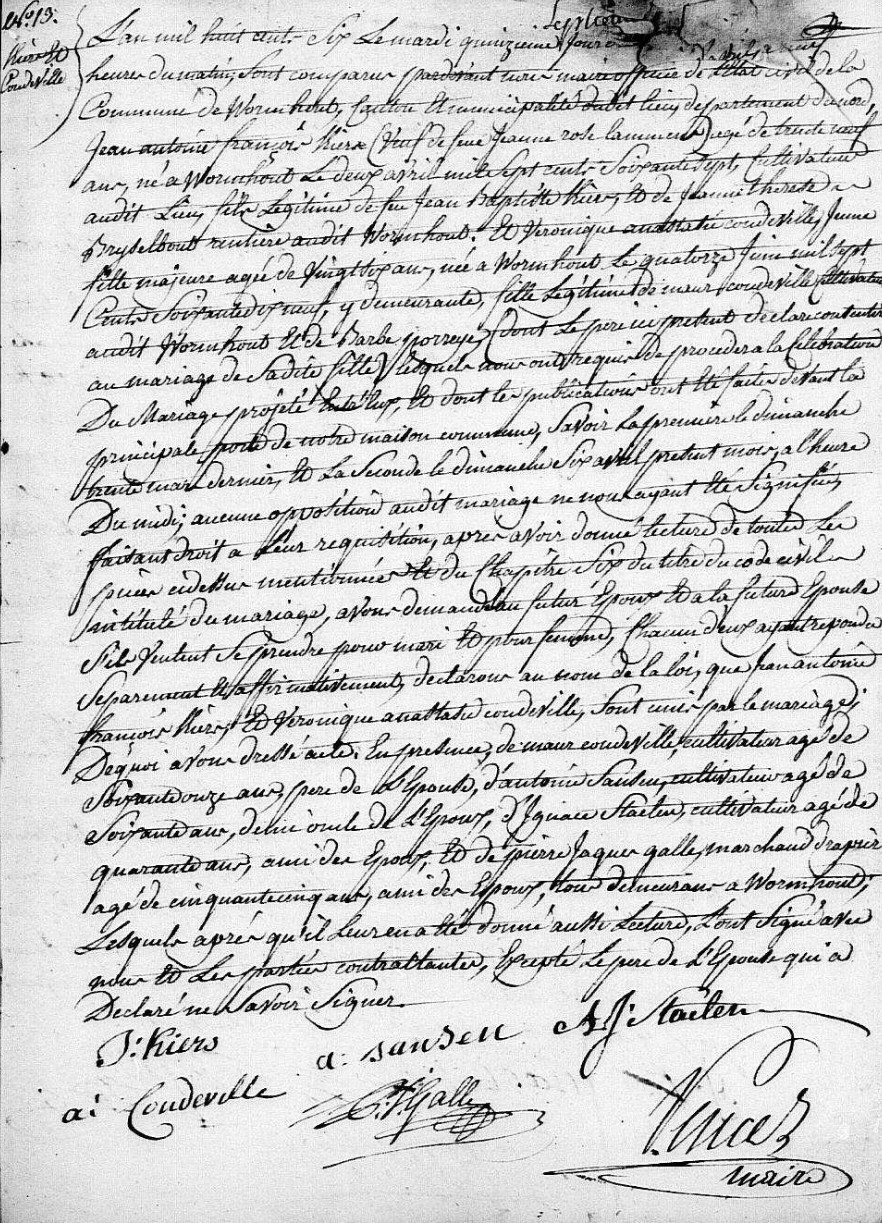 N.º 13.
Kiers et
Coudeville
L'an mil huit cents Six Le mardi quinzieme Jour d'avril a neuf
heures du matin, Sont comparus pardevant nous maire officier de L'Etat civil de la
Commune de Wormhout, Canton et municipalité dudit lieu, departement du nord,
Jean antoine françois Kiers (Veuf de feue Jeanne rose lammens) agé de trente neuf
ans, né a Wormhout Le deux avril mil Sept cents Soixante Sept, Cultivateur
audit Lieu, fils Legitime de feu Jean Baptiste Kiers, et de Jeanne therese
Bryselbout rentière audit Wormhout. Et Veronique anastasie coudeville, Jeune
fille majeure agée de Vingt Six ans, née a Wormhout Le quatorze Juin mil Sept
Cents Soixante dix neuf, y demeurante, fille Legitime de maur coudeville Cultivateur
audit Wormhout et de Barbe porreye, (dont Le pere ici present declare consentir
au mariage de Sadite fille) lesquels nous ont requis de proceder a la Célébration
Du Mariage projeté Entre Eux, et dont les publications ont été faites devant la
principale porte de notre maison commune, Savoir La premiere le dimanche
trente mars dernier, et La Seconde le dimanche Six avril present mois, a l'heure
Du midi; aucune opposition audit mariage ne nous ayant été Signifiée,
faisant droit a Leur requisition, après avoir donné lecture de toutes Les
pièces cidessus mentionnées et du Chapitre Six du titre du code civil
intitulé du mariage, avons demandé au futur Epoux et a la future Epouse
S'ils Veulent Se prendre pour mari et pour femme, Chacun d'eux ayant repondu
Separement et affirmativement, declarons au nom de la loi, que Jean antoine
françois Kiers, et Veronique anastasie coudeville, Sont unis par le mariage;
De quoi avons dressé acte. En presence, de maur coudeville, cultivateur agé de
Soixante onze ans, pere de L'Epouse, d'antoine Sansen, cultivateur agé de
Soixante ans, demi oncle de L'Epoux, d'Ignace Staelen, cultivateur agé de
quarante ans, ami des Epoux, et de pierre Jaques galle, marchand drapier
agé de cinquante cinq ans, ami des Epoux, tous demeurans a Wormhout;
Lesquels après qu'il Leur en a été donné aussi Lecture, L'ont Signé avec
nous et Les parties contractantes, Excepté Le pere de L'Epouse qui a
Declaré ne Savoir Signer.
J: Kiers
a: Sansen
J: Staelen
a: Coudeville
P. J. Galle
maire